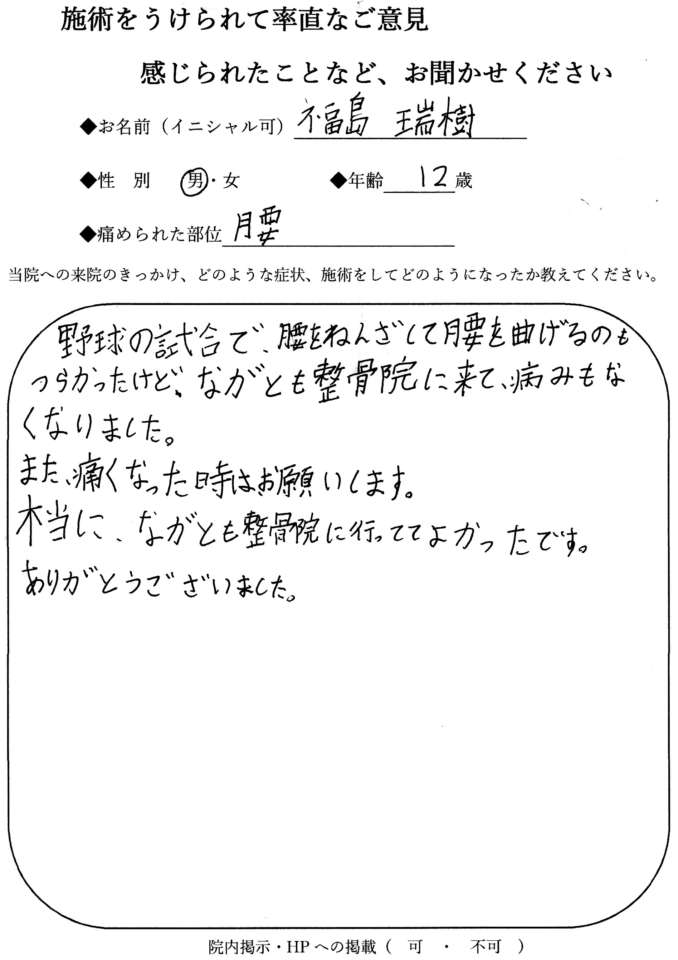 施術をうけられて率直なご意見
感じられたことなど、お聞かせください
◆お名前（イニシャル可） 福島 瑞樹
◆性 別 男・女 ◆年齢 12歳
◆痛められた部位 腰
当院への来院のきっかけ、どのような症状、施術をしてどのようになったか教えてください。
野球の試合で、腰をねんざして腰を曲げるのも
つらかったけど、ながとも整骨院に来て、病みもな
くなりました。
また、痛くなった時はお願いします。
本当に、ながとも整骨院に行っててよかったです。
ありがとうございました。
院内掲示・HPへの掲載（ 可 ・ 不可 ）